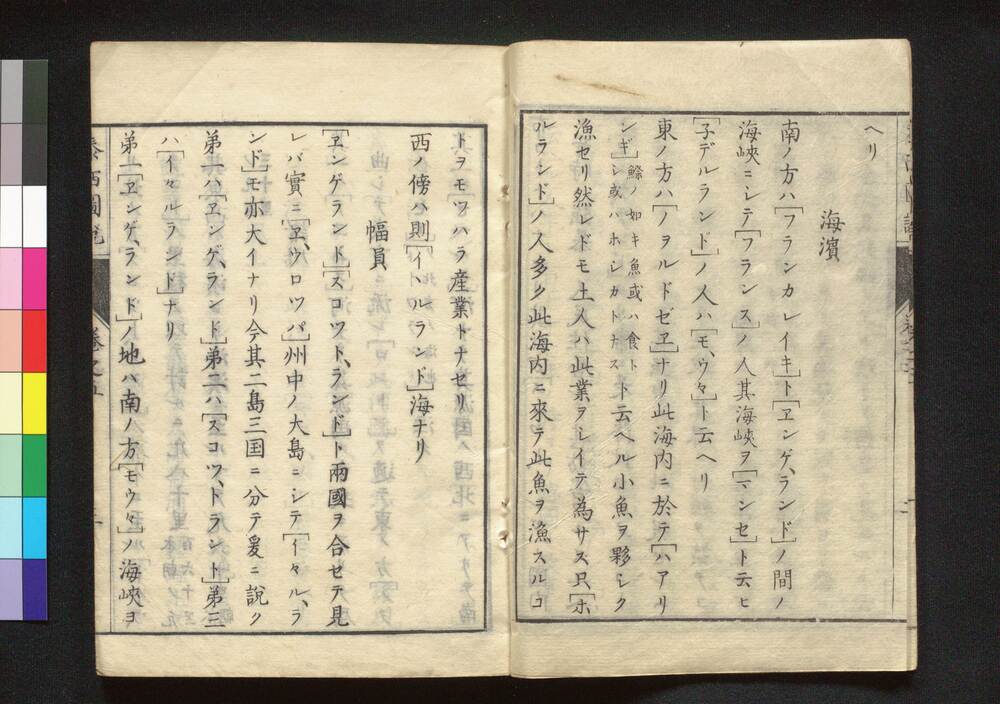 ヘリ
海濱
南ノ方ハ[フランカレイキ]ト[ヱンゲ、ランド]ノ間ノ
海峽ニシテ[フランス]ノ人其海峽ヲ[マンセ]ト云ヒ
[子デルランド]ノ人ハ[モ、ウ々]ト云ヘリ
東ノ方ハ[ノヲルドゼヱ]ナリ此海内ニ於テ[ハアリ
ンギ]鰶ノ如キ魚或ハ食トシ或ハホシカトナスト云ヘル小魚ヲ夥シク
漁セリ然レドモ土人ハ此業ヲシイテ為サズ只[ホ
ルランド]ノ人多ク此海内ニ來テ此魚ヲ漁スルコ
トヲモツハラ産業トナセリ
西ノ傍ハ則[イヽルランド]海ナリ
幅員
[ヱンゲランド][スコツト、ランド]ト兩國ヲ合セテ見
レバ實ニ[ヱ、ウロツパ]州中ノ大島ニシテ[イ々ル、ラ
ンド]モ亦大イナリ今其二島三国ニ分テ爰ニ説ク
弟一ハ[ヱンゲ、ランド]弟二ハ[スコツ、トラント]弟三
ハ[イ々ルランド]ナリ
弟一[ヱンゲ、ランド]ノ地ハ南ノ方[モウ々]ノ海峽ヨ
泰西圖説
卷之五